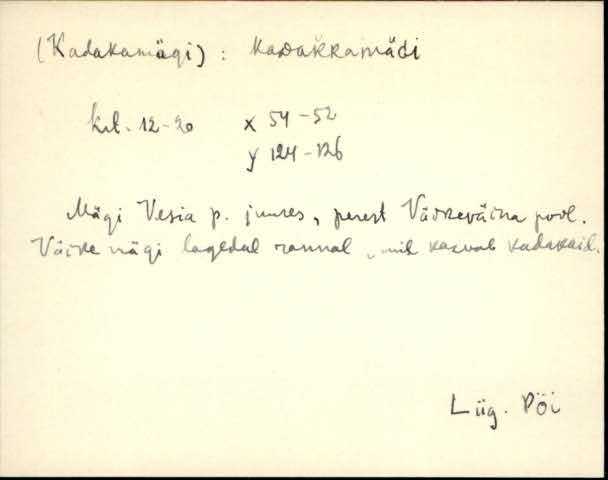 (Kadakamägi) : kadakkamädi
krt. 12-20 x 54-52
y 124-126
Mägi Vesia p. juures, perest Väikeväina pool.
Väike mägi lagedal rannal, mil kasvab kadakaid.
Lüg. Pöi